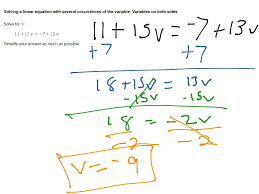 Solving a linear equation with several occurrences of the variable: Variables on both sides
Solve for v
11+15v = -7+13v
Simplify your answer as much as possible.
11+15v = -7+13v
+7 +7
18+15v = 13v
-15v -15v
18 = -2v
-2 -2
v = -9